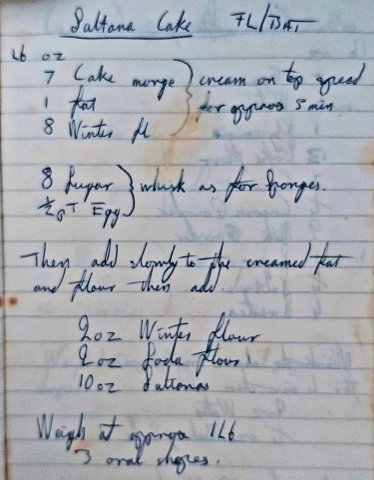 Sultana Cake FL/BAT
Lb oz
7 Cake marge } cream on top speed
1 fat for approx 5 min
8 Winter fl
8 Sugar } whisk as for sponges.
Egg
Then add slowly to the creamed fat
and flour then add.
2oz Winter flour
2oz Soda flour
10oz Sultanas
Weigh at approx 1Lb
3 oval shapes.